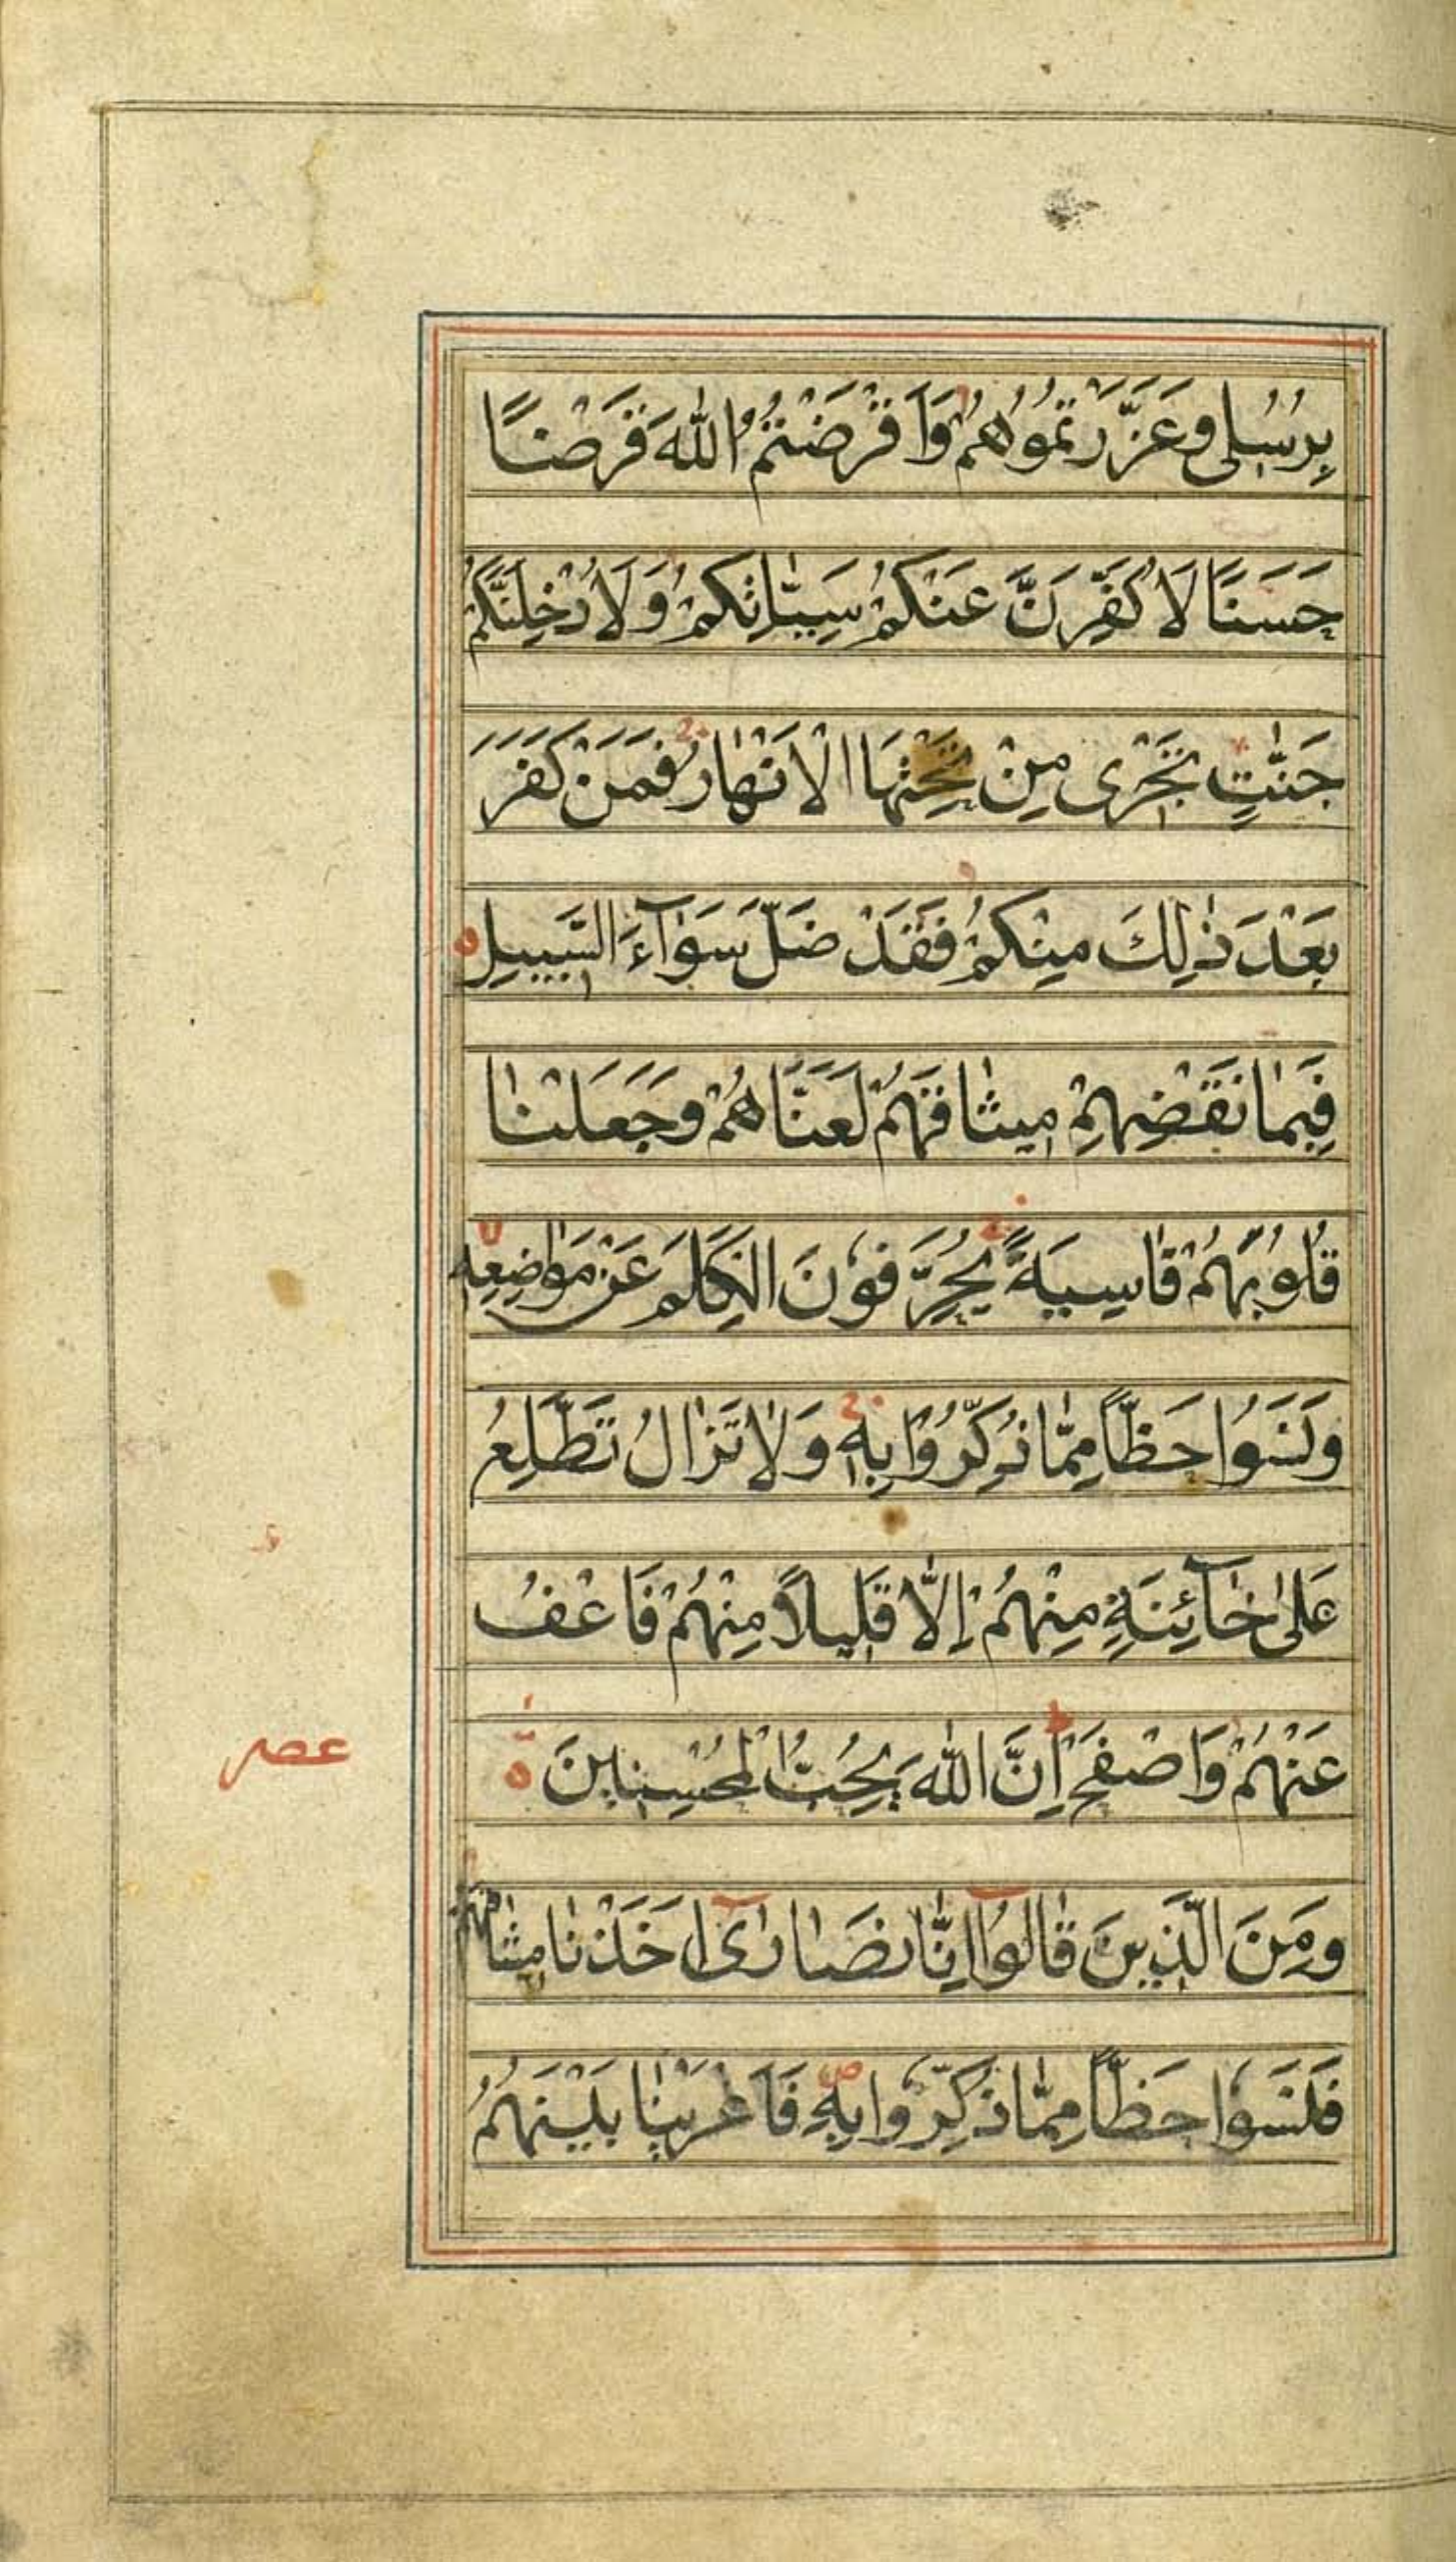 بِرُسُلِی وَعَزَّرْتُمُوُهُمْ وَاَقْرَضْتُمُ اللّٰهَ قَرْضًا
حَسَنًا لَاُكَفِّرَنَّ عَنْكُمْ سَيِّئٰاتِكُمْ وَلَاُدْخِلَنَّكُمْ
جَنّٰتٍ تَجْرٖى مِنْ تَحْتِهَا الْاَنْهٰارُ فَمَنْ كَفَرَ
بَعْدَ ذٰلِكَ مِنْكُمْ فَقَدْ ضَلَّ سَوٰآءَ السَّبٖيلِ ه
فَبِمٰا نَقْضِهِمْ مٖيثٰاقَهُمْ لَعَنَّاهُمْ وَجَعَلْنٰا
قُلُوبَهُمْ قٰاسِيَةً يُحَرِّفُونَ الْكَلِمَ عَنْ مَوٰاضِعِهٖ
وَنَسُوا حَظًّا مِمّٰا ذُكِّرُوا بِهٖ وَلٰا تَزٰالُ تَطَّلِعُ
عَلىٰ خٰآئِنَةٍ مِنْهُمْ اِلّٰا قَلٖيلًا مِنْهُمْ فَاعْفُ
عَنْهُمْ وَاصْفَحْ اِنَّ اللّٰهَ يُحِبُّ الْمُحْسِنٖينَ ه
عصر
وَمِنَ الَّذٖينَ قٰالُوآ اِنّٰا نَصٰارٰىٓ اَخَذْنٰا مٖيثٰاقَهُمْ
فَنَسُوا حَظًّا مِمّٰا ذُكِّرُوا بِهٖ فَاَغْرَيْنٰا بَيْنَهُمُ